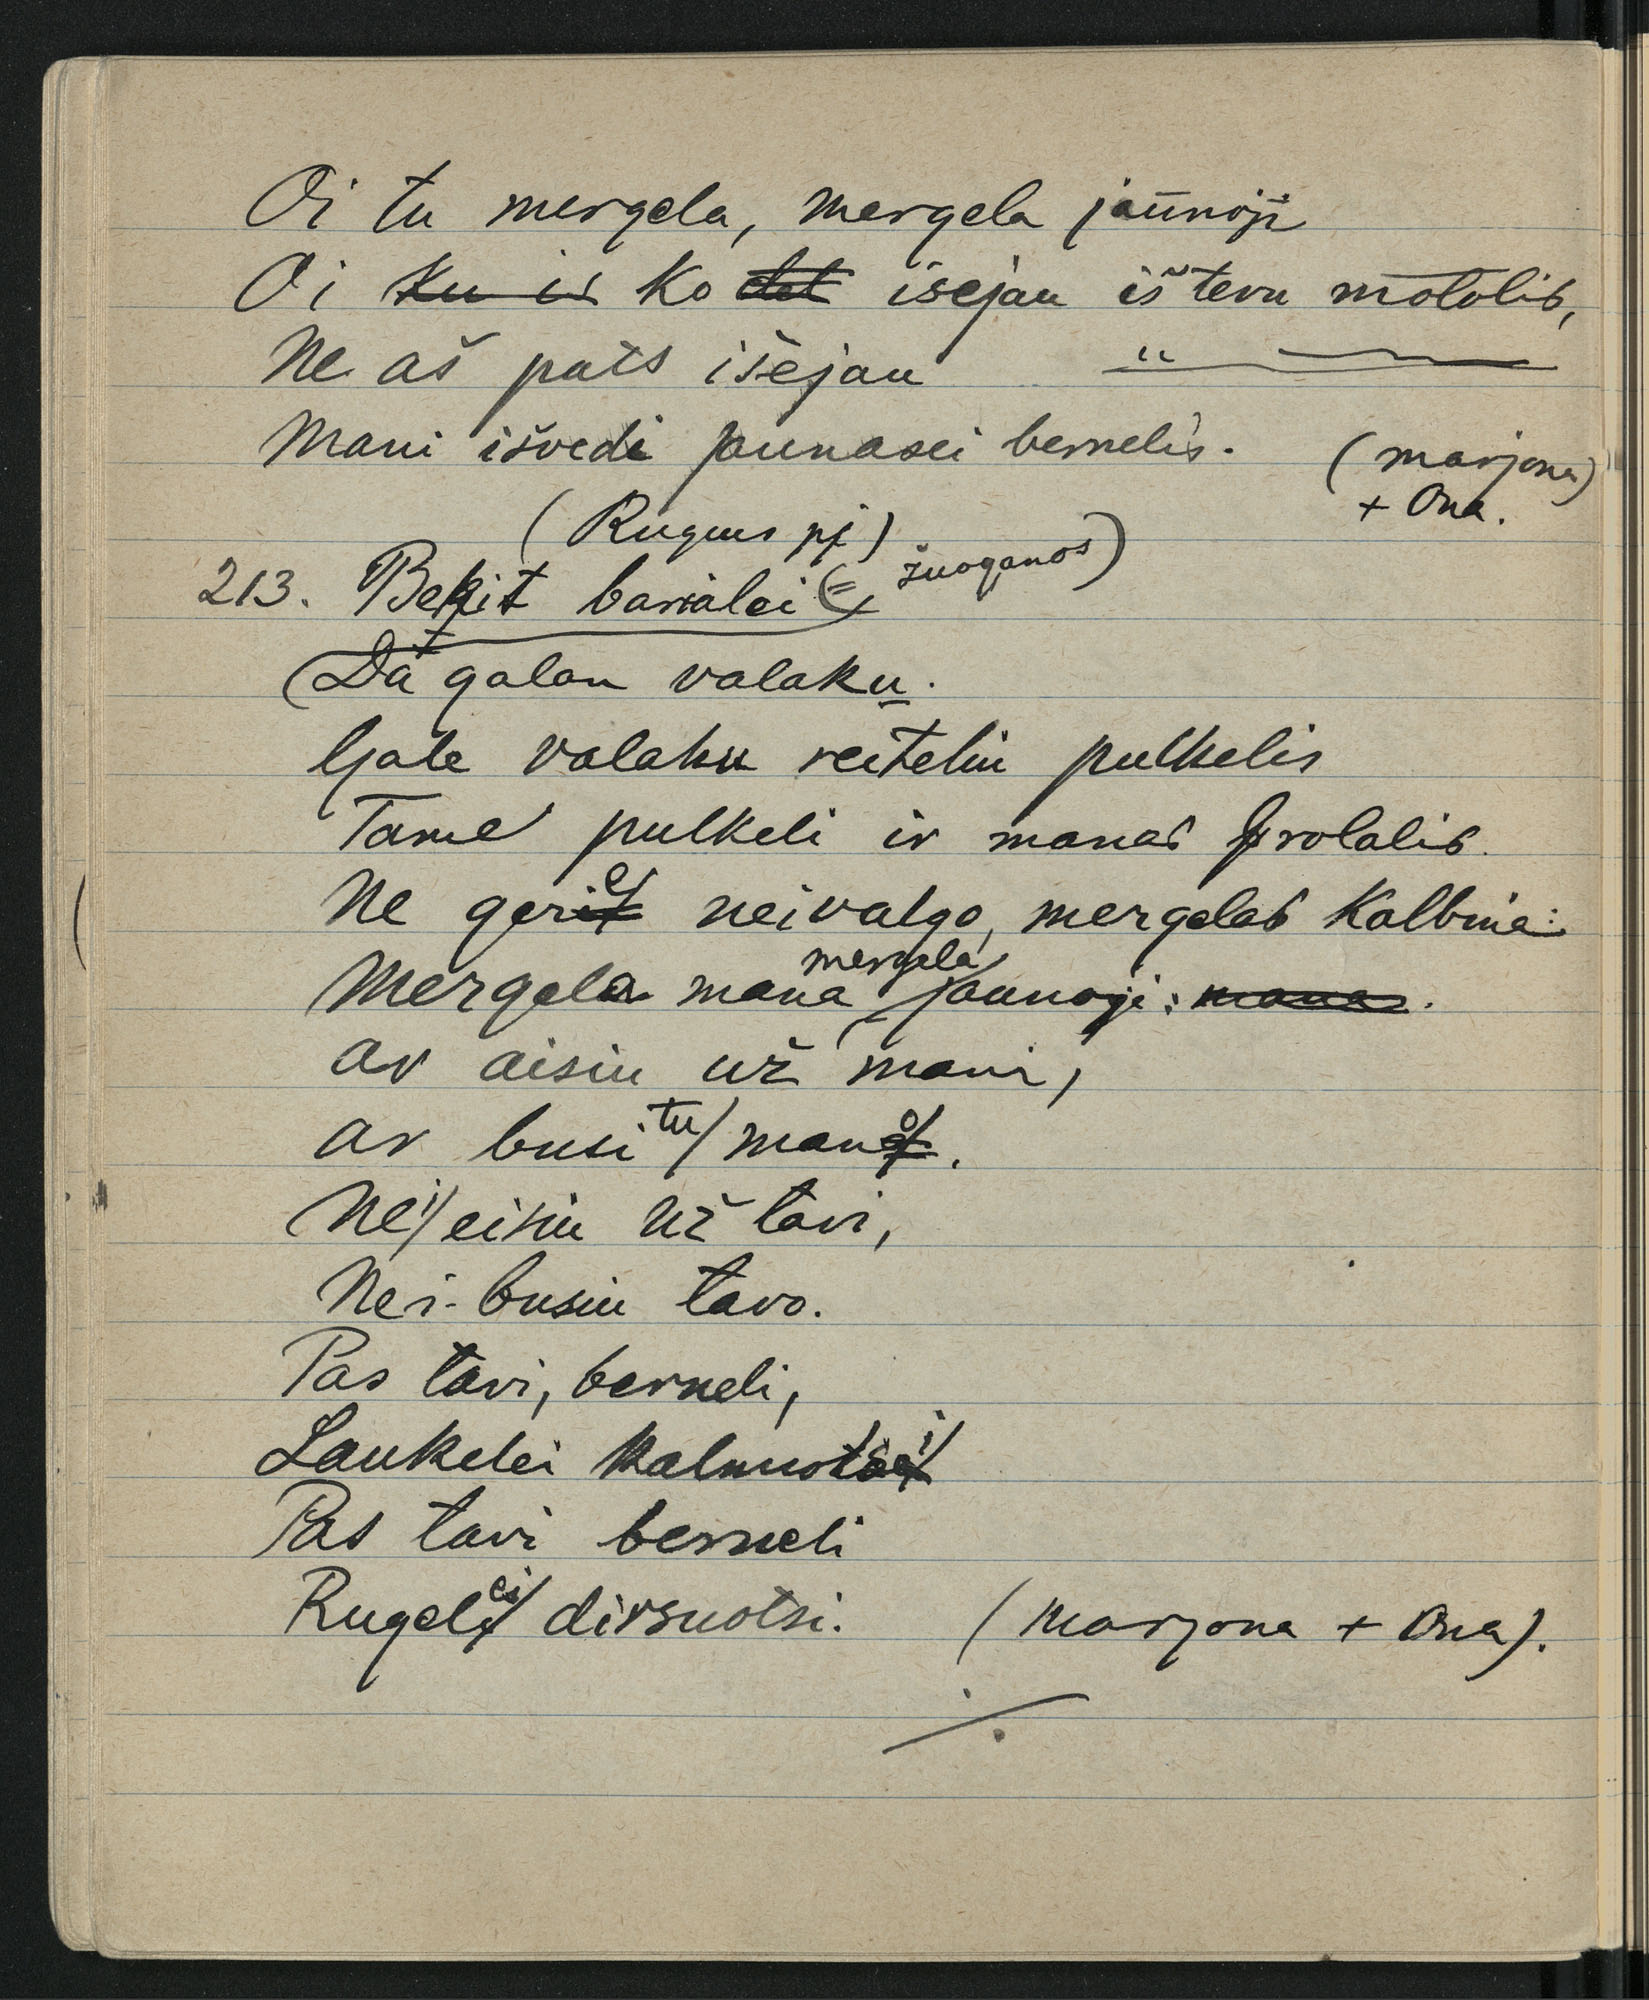 Oi tu mergela, mergela jaunoji
Oi ku ir ko del isejau iš tevu motolis,
Ne aš pats išejau "
Mani išvedi jaunasei bernelis. (Marjona)
+ Ona.
(Rugius pj)
213. Bekit barialei (= žuoganos)
Dat galan valaku.
Gale valaku reiteliu pulkelis
Tame pulkeli ir manas brolalis.
Ne geria neivalgo, mergelas kalbina:
Mergela mana mergela jaunoji: mana.
ar aisiu už mani,
ar busi tu mano.
Nei eisiu už tavi,
Nei-busiu tavo.
Pas tavi, berneli,
Laukelei kalnuotsi
Pas tavi berneli
Rugelei dirsuotsi. (Marjona + Ona).